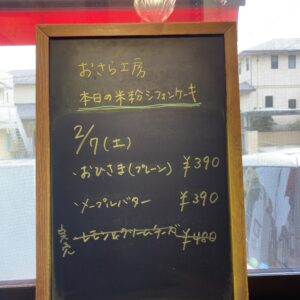 おさら工房
本日の米粉シフォンケーキ
2/7(土)
・おひさま(プレーン) ¥390
・メープルバター ¥390
完売 レモン&クリームチーズ ¥480